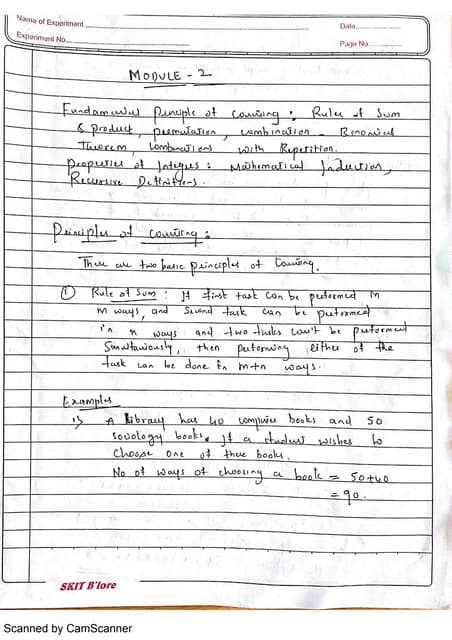 Name of Experiment
Date
Experiment No.
Page No.
MODULE - 2
Fundamental Principle of counting : Rules of Sum
& product, permutation, combination - Binomial
Theorem, combinations with Repetition.
Properties of Integers : Mathematical Induction,
Recursive Definitions.
Principles of counting :
There are two basic principles of Counting.
① Rule of Sum : If first task can be performed in
m ways, and Second task can be performed
in n ways and two tasks can't be performed
Simultaniously, then performing either of the
task can be done in m+n ways.
Examples
1) A library has 40 computer books and 50
sociology books. If a student wishes to
choose one of these books.
No of ways of choosing a book = 50+40
= 90.
SKIT B'lore
Scanned by CamScanner